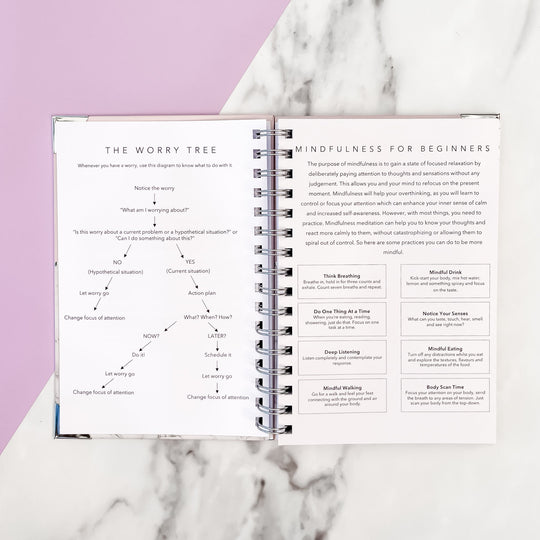 THE WORRY TREE
Whenever you have a worry, use this diagram to know what to do with it.
Notice the worry
"What am I worrying about?"
"Is this worry about a current problem or a hypothetical situation?" or
"Can I do something about this?"
NO
(Hypothetical situation)
YES
(Current situation)
Let worry go
Action plan
Change focus of attention
What? When? How?
NOW?
LATER?
Do it!
Schedule it
Let worry go
Let worry go
Change focus of attention
Change focus of attention
MINDFULNESS FOR BEGINNERS
The purpose of mindfulness is to gain a state of focused relaxation by
deliberately paying attention to thoughts and sensations without any
judgement. This allows you and your mind to refocus on the present
moment. Mindfulness will help your overthinking, as you will learn to
control or focus your attention which can enhance your inner sense of calm
and increased self-awareness. However, with most things, you need to
practice. Mindfulness meditation can help you to know your thoughts and
react more calmly to them, without catastrophizing or allowing them to
spiral out of control. So here are some practices you can do to be more
mindful.
Think Breathing
Breathe in, hold in for three counts and
exhale. Count seven exhales and repeat.
Mindful Drink
Kick-start your body, mix hot water,
lemon and something spicy and focus
on the taste.
Do One Thing At a Time
When you're eating, reading,
showering, just do that. Focus on one
task at a time.
Notice Your Senses
What can you taste, touch, hear, smell
and see right now?
Deep Listening
Listen completely and contemplate your
response.
Mindful Eating
Turn off any distractions whilst you eat
and explore the textures, flavours and
temperatures of the food
Mindful Walking
Go for a walk and feel your feet
connecting with the ground and air
around your body.
Body Scan Time
Focus your attention on your body, send
the breath to any areas of tension. Just
scan your body from the top-down.